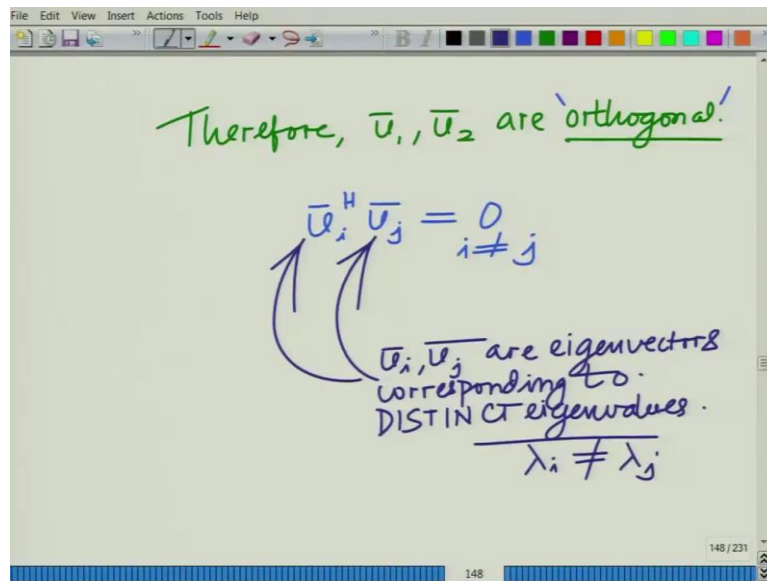 File Edit View Insert Actions Tools Help
Therefore, ū₁, ū₂ are 'orthogonal'.
ūᵢᴴ ūⱼ = 0
i ≠ j
ūᵢ, ūⱼ are eigenvectors
corresponding to
DISTINCT eigenvalues.
λᵢ ≠ λⱼ
148 / 231
148